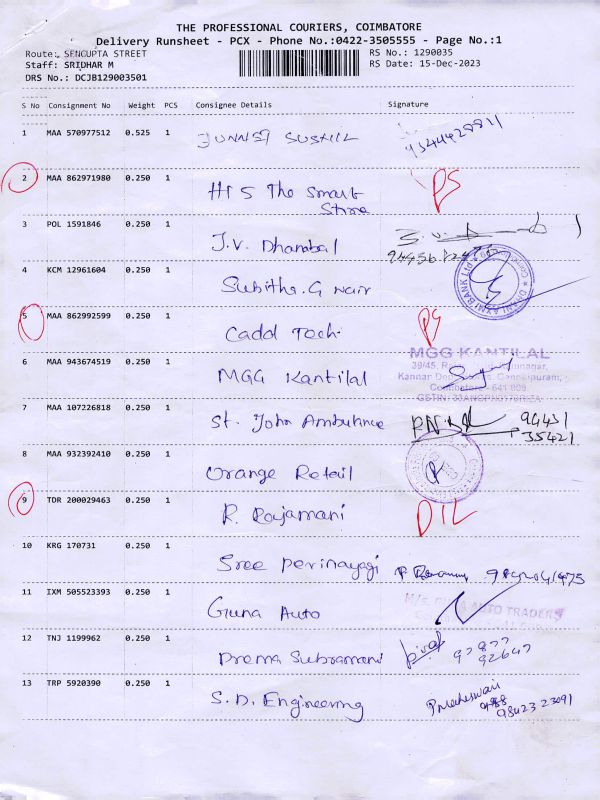 THE PROFESSIONAL COURIERS, COIMBATORE
Delivery Runsheet - PCX - Phone No.:0422-3505555 - Page No.:1
Route: SENGUPTA STREET RS No.: 1290035
Staff: SRIDHAR M RS Date: 15-Dec-2023
DRS No.: DCJB129003501
S No Consignment No Weight PCS Consignee Details Signature
1 MAA 570977512 0.525 1
2 MAA 862971980 0.250 1 The Smart PS
Store
3 POL 1591846 0.250 1 J.V. Dhanabal
4 KCM 12961604 0.250 1 Subitha. G Nair
5 MAA 862992599 0.250 1 Cadd Tech PS
MGG KANTILAL
6 MAA 943674519 0.250 1 MGG Kantilal
7 MAA 107226818 0.250 1 St. John Ambulance 94431
35421
8 MAA 932392410 0.250 1 Orange Retail
9 TDR 200029463 0.250 1 R. Rajamani DIL
10 KRG 170731 0.250 1 Sree Perinayagi
11 IXM 505523393 0.250 1 Guna Auto AUTO TRADERS
12 TNJ 1199962 0.250 1 Prema Subramani
92647
13 TRP 5920390 0.250 1 S.D. Engineering
98423 23091